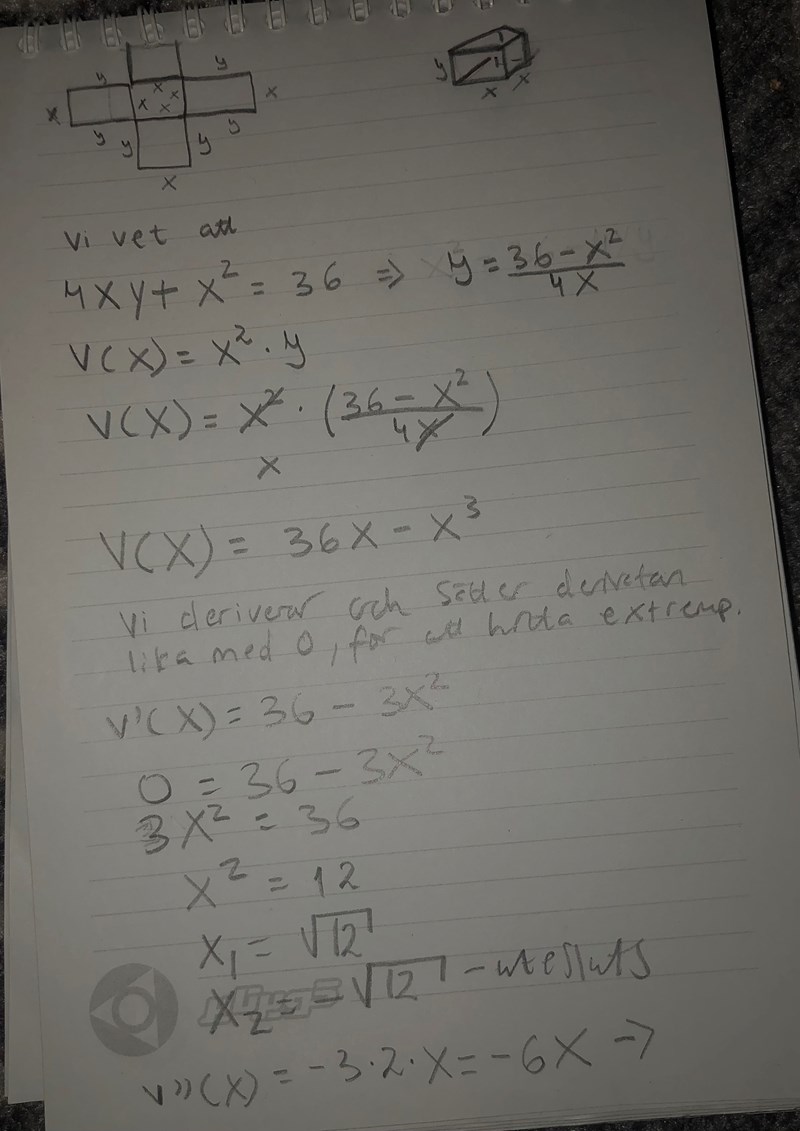 y y
x x x x x x
y y y y
x
y x x
Vi vet att
4xy + x² = 36 ⇒ y = (36 - x²)/(4x)
V(x) = x² · y
V(x) = x² · ((36 - x²)/(4x))
x
V(x) = 36x - x³
Vi deriverar och sätter derivatan
lika med 0, för att hitta extremp.
V'(x) = 36 - 3x²
0 = 36 - 3x²
3x² = 36
x² = 12
x₁ = √12
x₂ = -√12 - utesluts
V''(x) = -3·2·x = -6x →